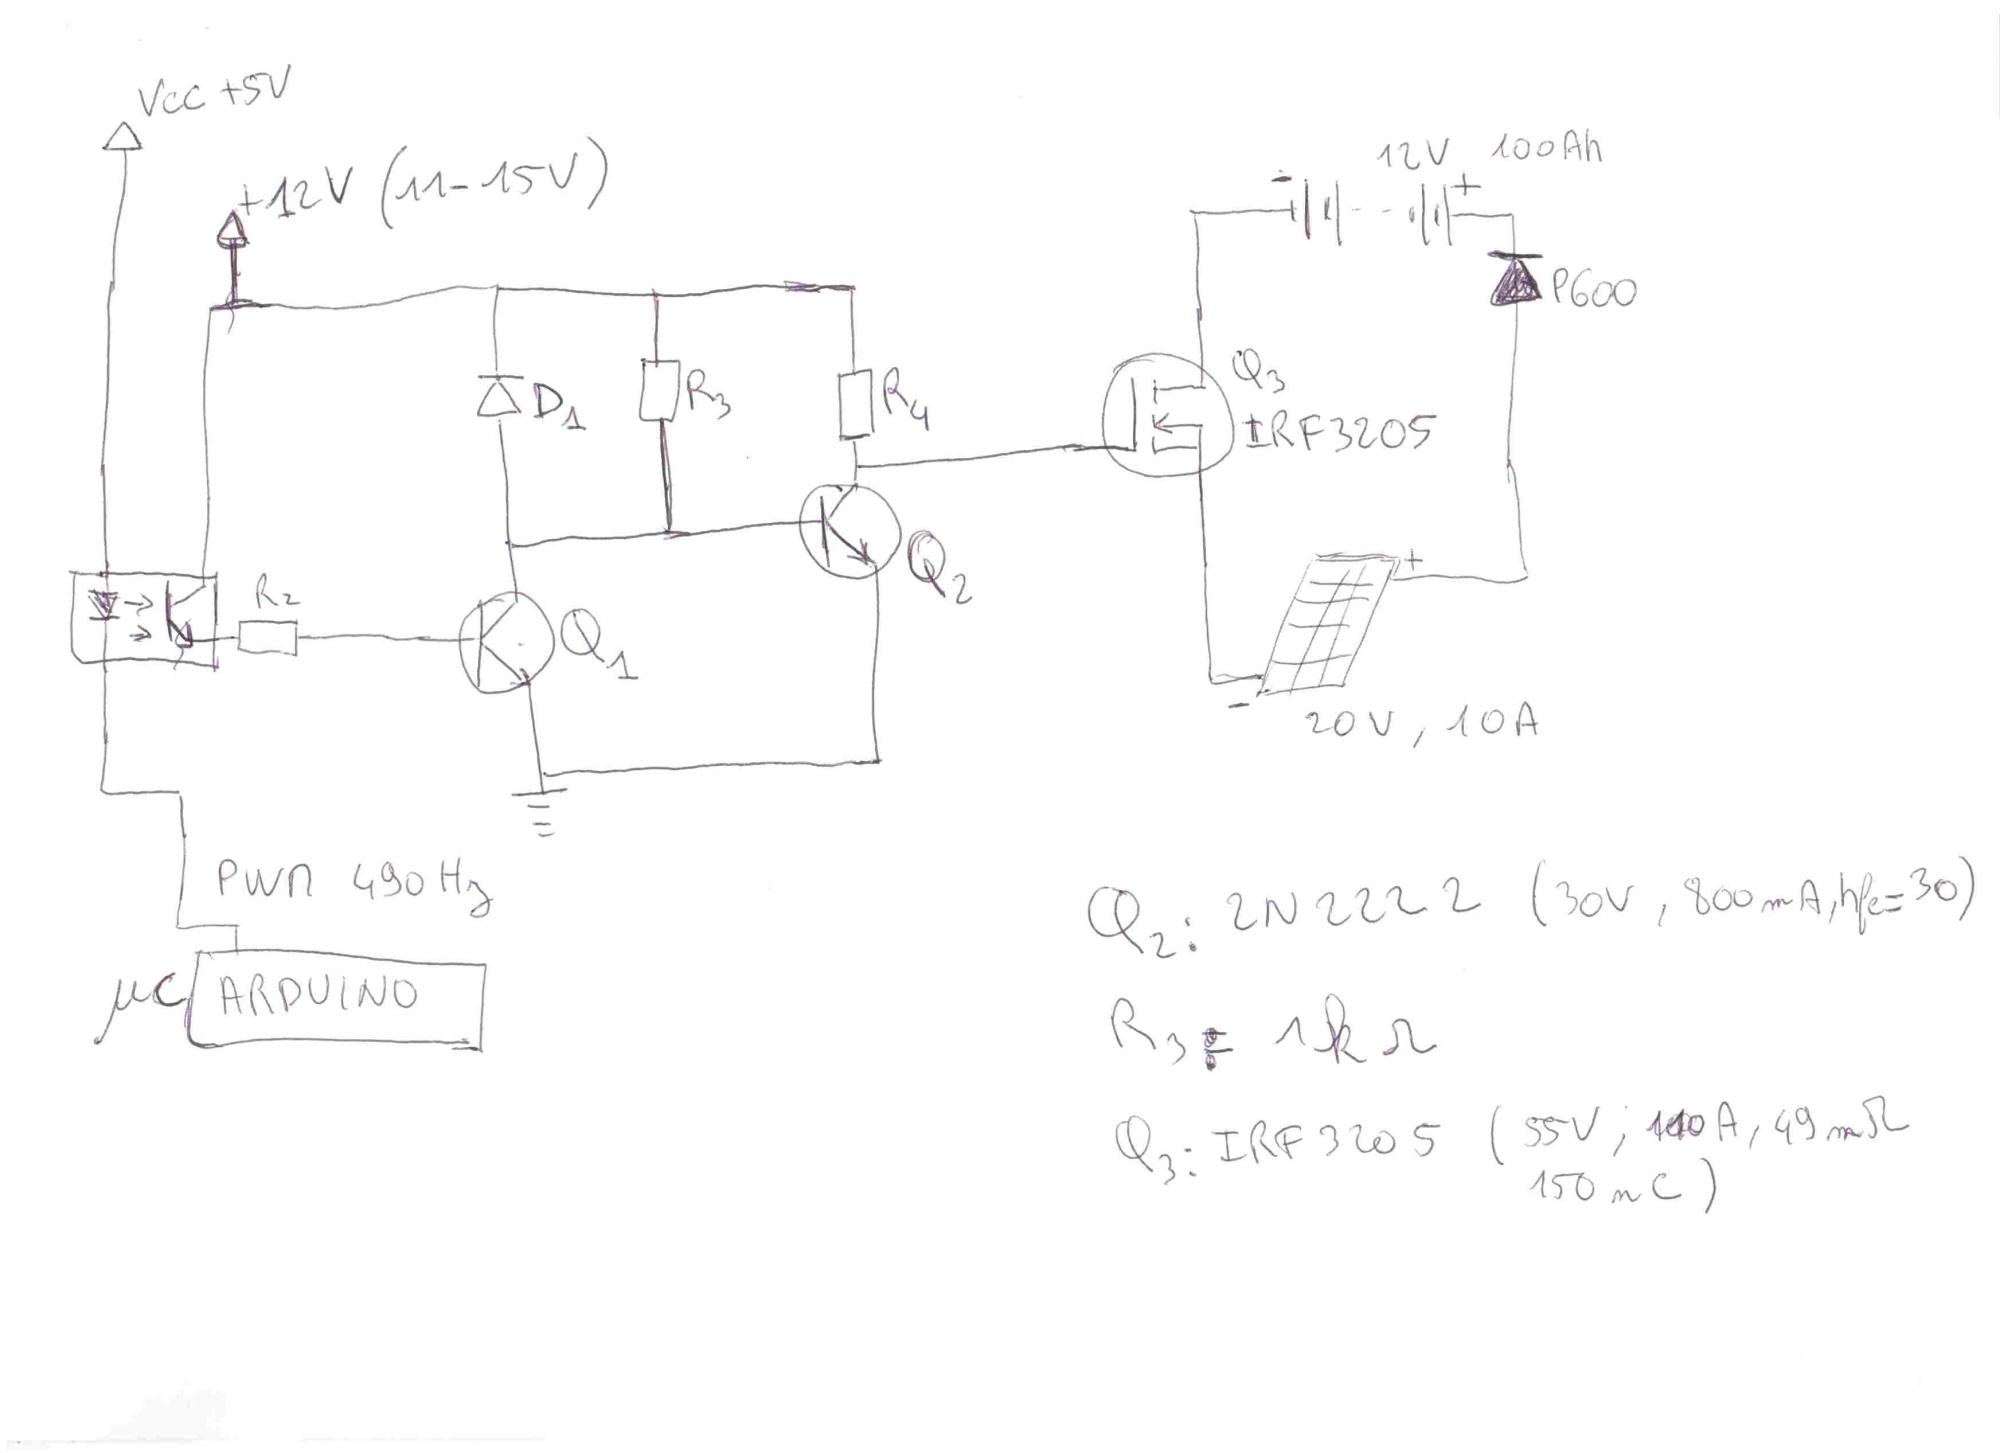 Vcc +5V
+12V (11-15V)
12V 100Ah
- +
P600
D1
R3
R4
Q3
IRF3205
R2
Q1
Q2
+
-
20V, 10A
PWM 490Hz
μC ARDUINO
Q2: 2N2222 (30V, 800mA, hfe=30)
R3: 1kΩ
Q3: IRF3205 (55V; 110A, 49mΩ
150nC)